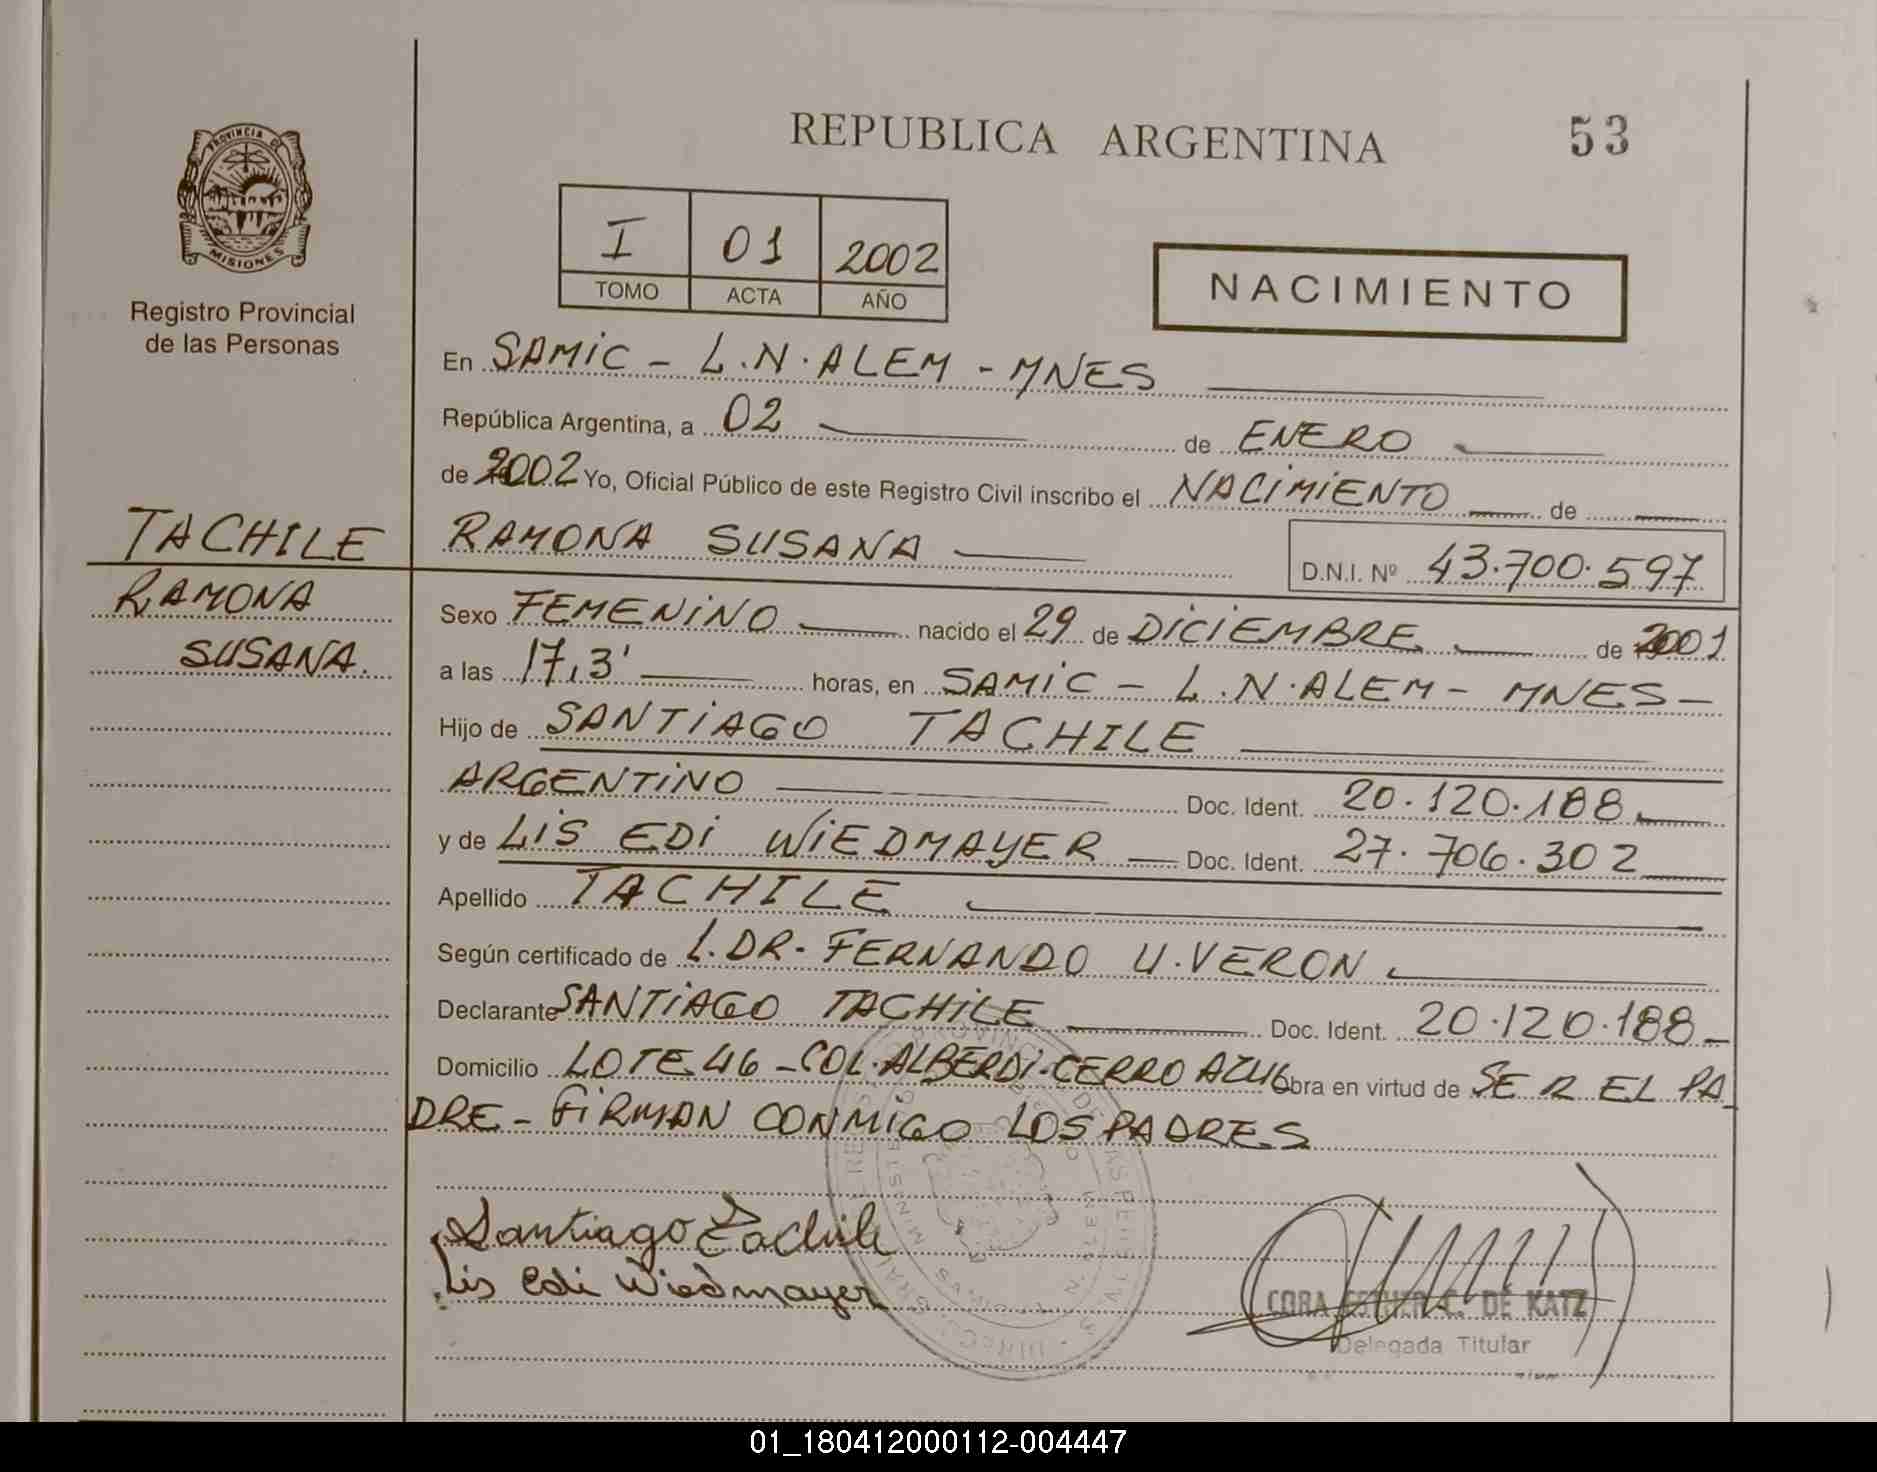 REPUBLICA ARGENTINA
53
PROVINCIA DE
MISIONES
Registro Provincial
de las Personas
I 01 2002
TOMO ACTA AÑO
NACIMIENTO
En SAMIC - L.N.ALEM - MNES
República Argentina, a 02 de ENERO
de 2002 Yo, Oficial Público de este Registro Civil inscribo el NACIMIENTO de
TACHILE
RAMONA SUSANA
D.N.I. Nº 43.700.597
RAMONA
SUSANA.
Sexo FEMENINO nacido el 29 de DICIEMBRE de 2001
a las 17,3' horas, en SAMIC - L.N.ALEM - MNES -
Hijo de SANTIAGO TACHILE
ARGENTINO Doc. Ident. 20.120.188
y de LIS EDI WIEDMAYER Doc. Ident. 27.706.302
Apellido TACHILE
Según certificado de L.DR. FERNANDO U.VERON
Declarante SANTIAGO TACHILE Doc. Ident. 20.120.188
Domicilio LOTE 46 - COL.ALBERDI-CERRO AZUL Obra en virtud de SER EL PA
DRE - FIRMAN CONMIGO LOS PADRES
Santiago Tachile
Lis Edi Wiedmayer
CORA ESTHER C. DE KATZ
Delegada Titular
01_180412000112-004447